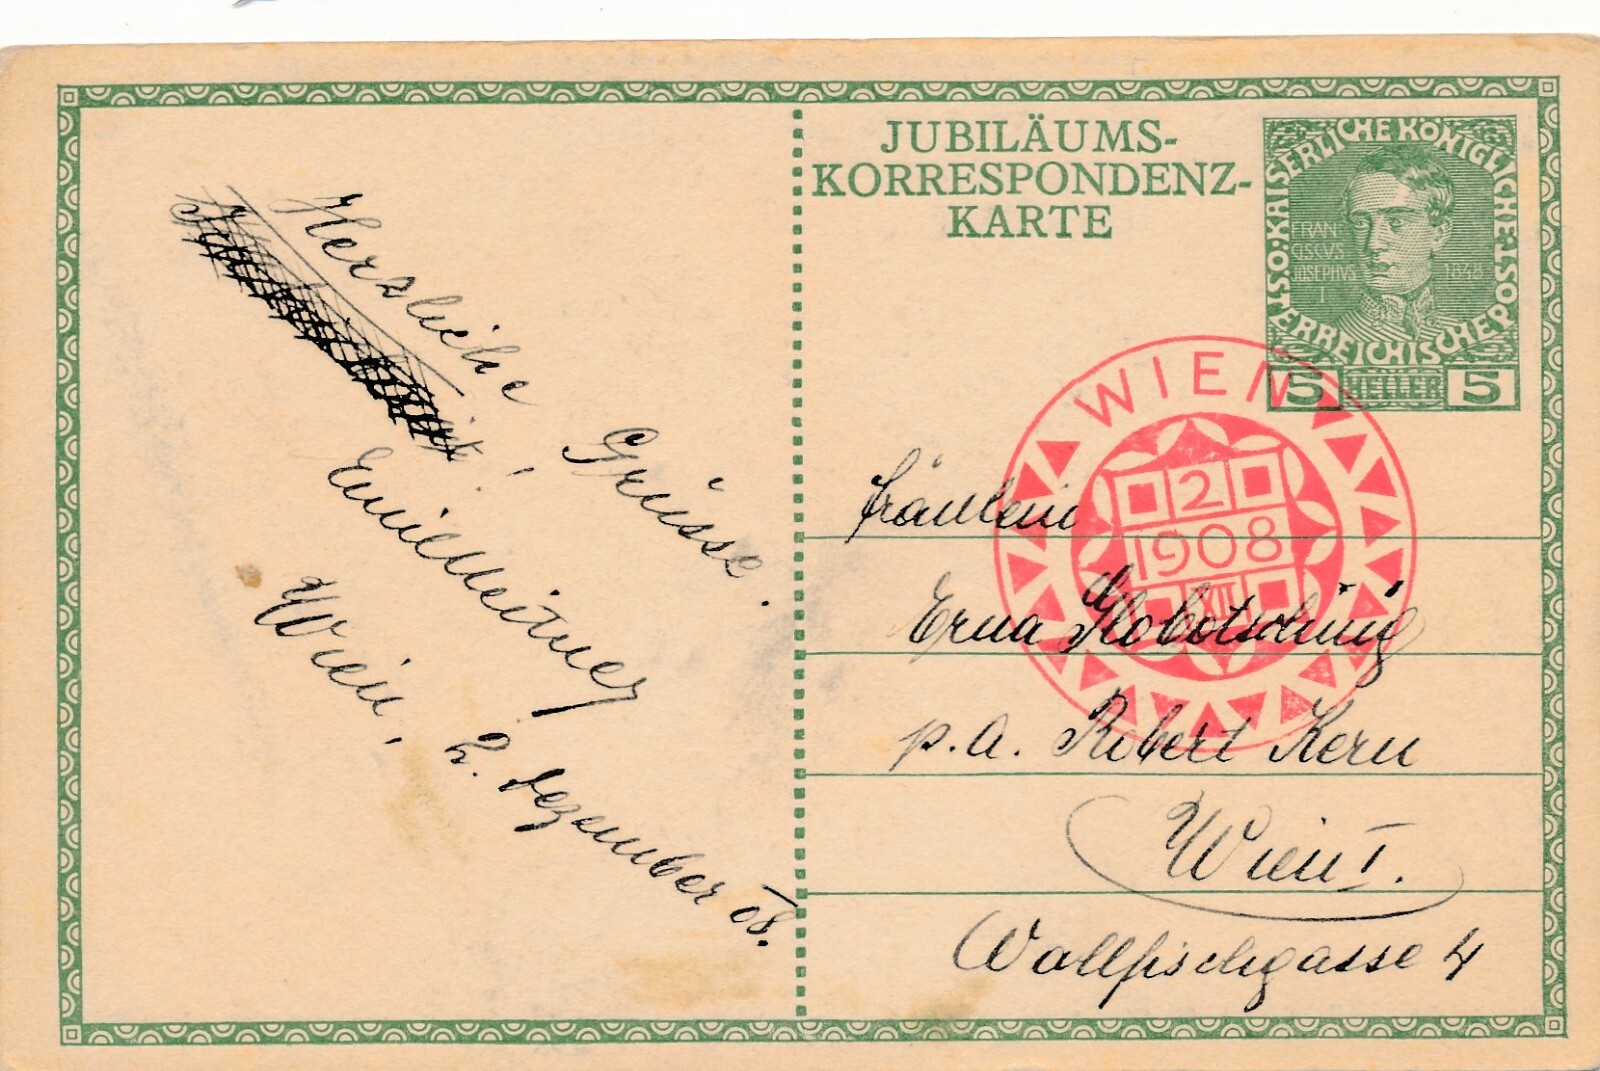 JUBILÄUMS-
KORRESPONDENZ-
KARTE
KAISERLICHE KÖNIGLICHE
ÖSTERREICHISCHE POST
FRAN
CISCVS
JOSEPHVS
I
1848
5 HELLER 5
WIEN
2
1908
XII
Herzliche Grüsse.
Wien, 2. Dezember 08.
Fräulein
Erna
p. A. Robert Kern
Wien I.
Wallfischgasse 4